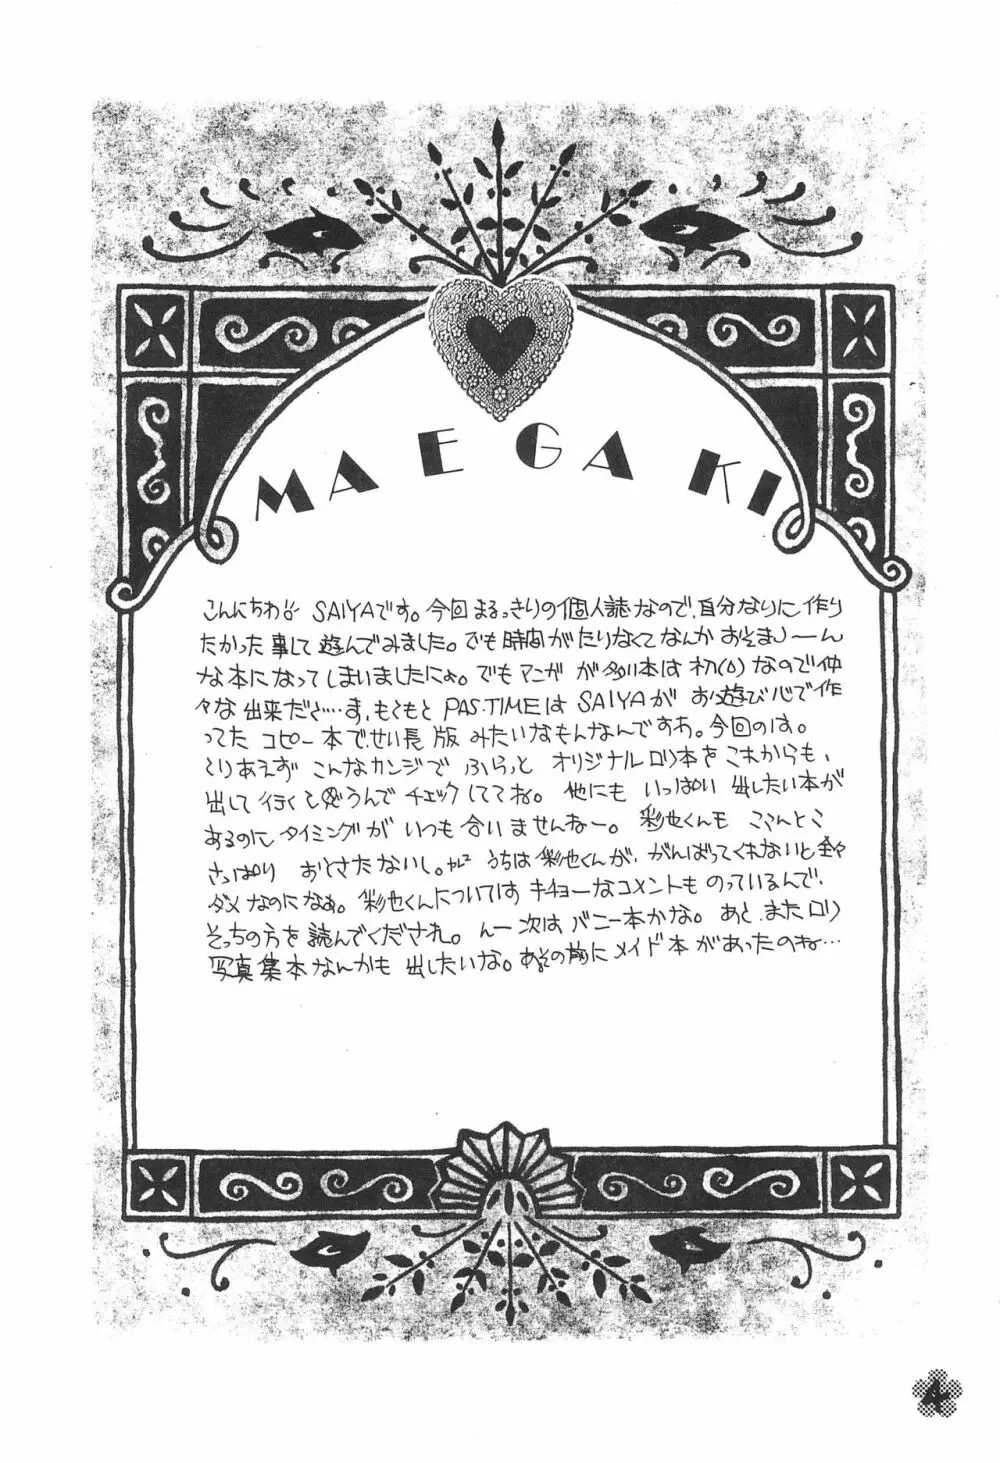 MAEGAKI
こんにちわ SAIYAです。今回まるっきりの個人誌なので、自分なりに作り
たかった事して遊んでみました。でも時間がたりなくてなんかおそまつーん
な本になってしまいましたにょ。でもマンガが多い本は初(心)なので仲
々な出来だぞ…ま、もともとPAS.TIMEはSAIYAがお遊び心で作
ってたコピー本でせい長版みたいなもんなんですわ。今回のは。
とりあえずこんなカンジでふらっとオリジナルロリ本をこれからも、
出して行くと思うんでチェックしててね。他にもいっぱい出したい本が
あるのにタイミングがいつも合いませんねー。彩也くんもここんとこ
さっぱりおとさたないし。うちは彩也くんが、がんばってくれないと全々
ダメなのになぁ。彩也くんについてはキチョーなコメントものっているんで、
そっちの方を読んでくだされ。んー次はバニー本かな。あと、またロリ
写真集本なんかも出したいな。あその前にメイド本があったのね…
4